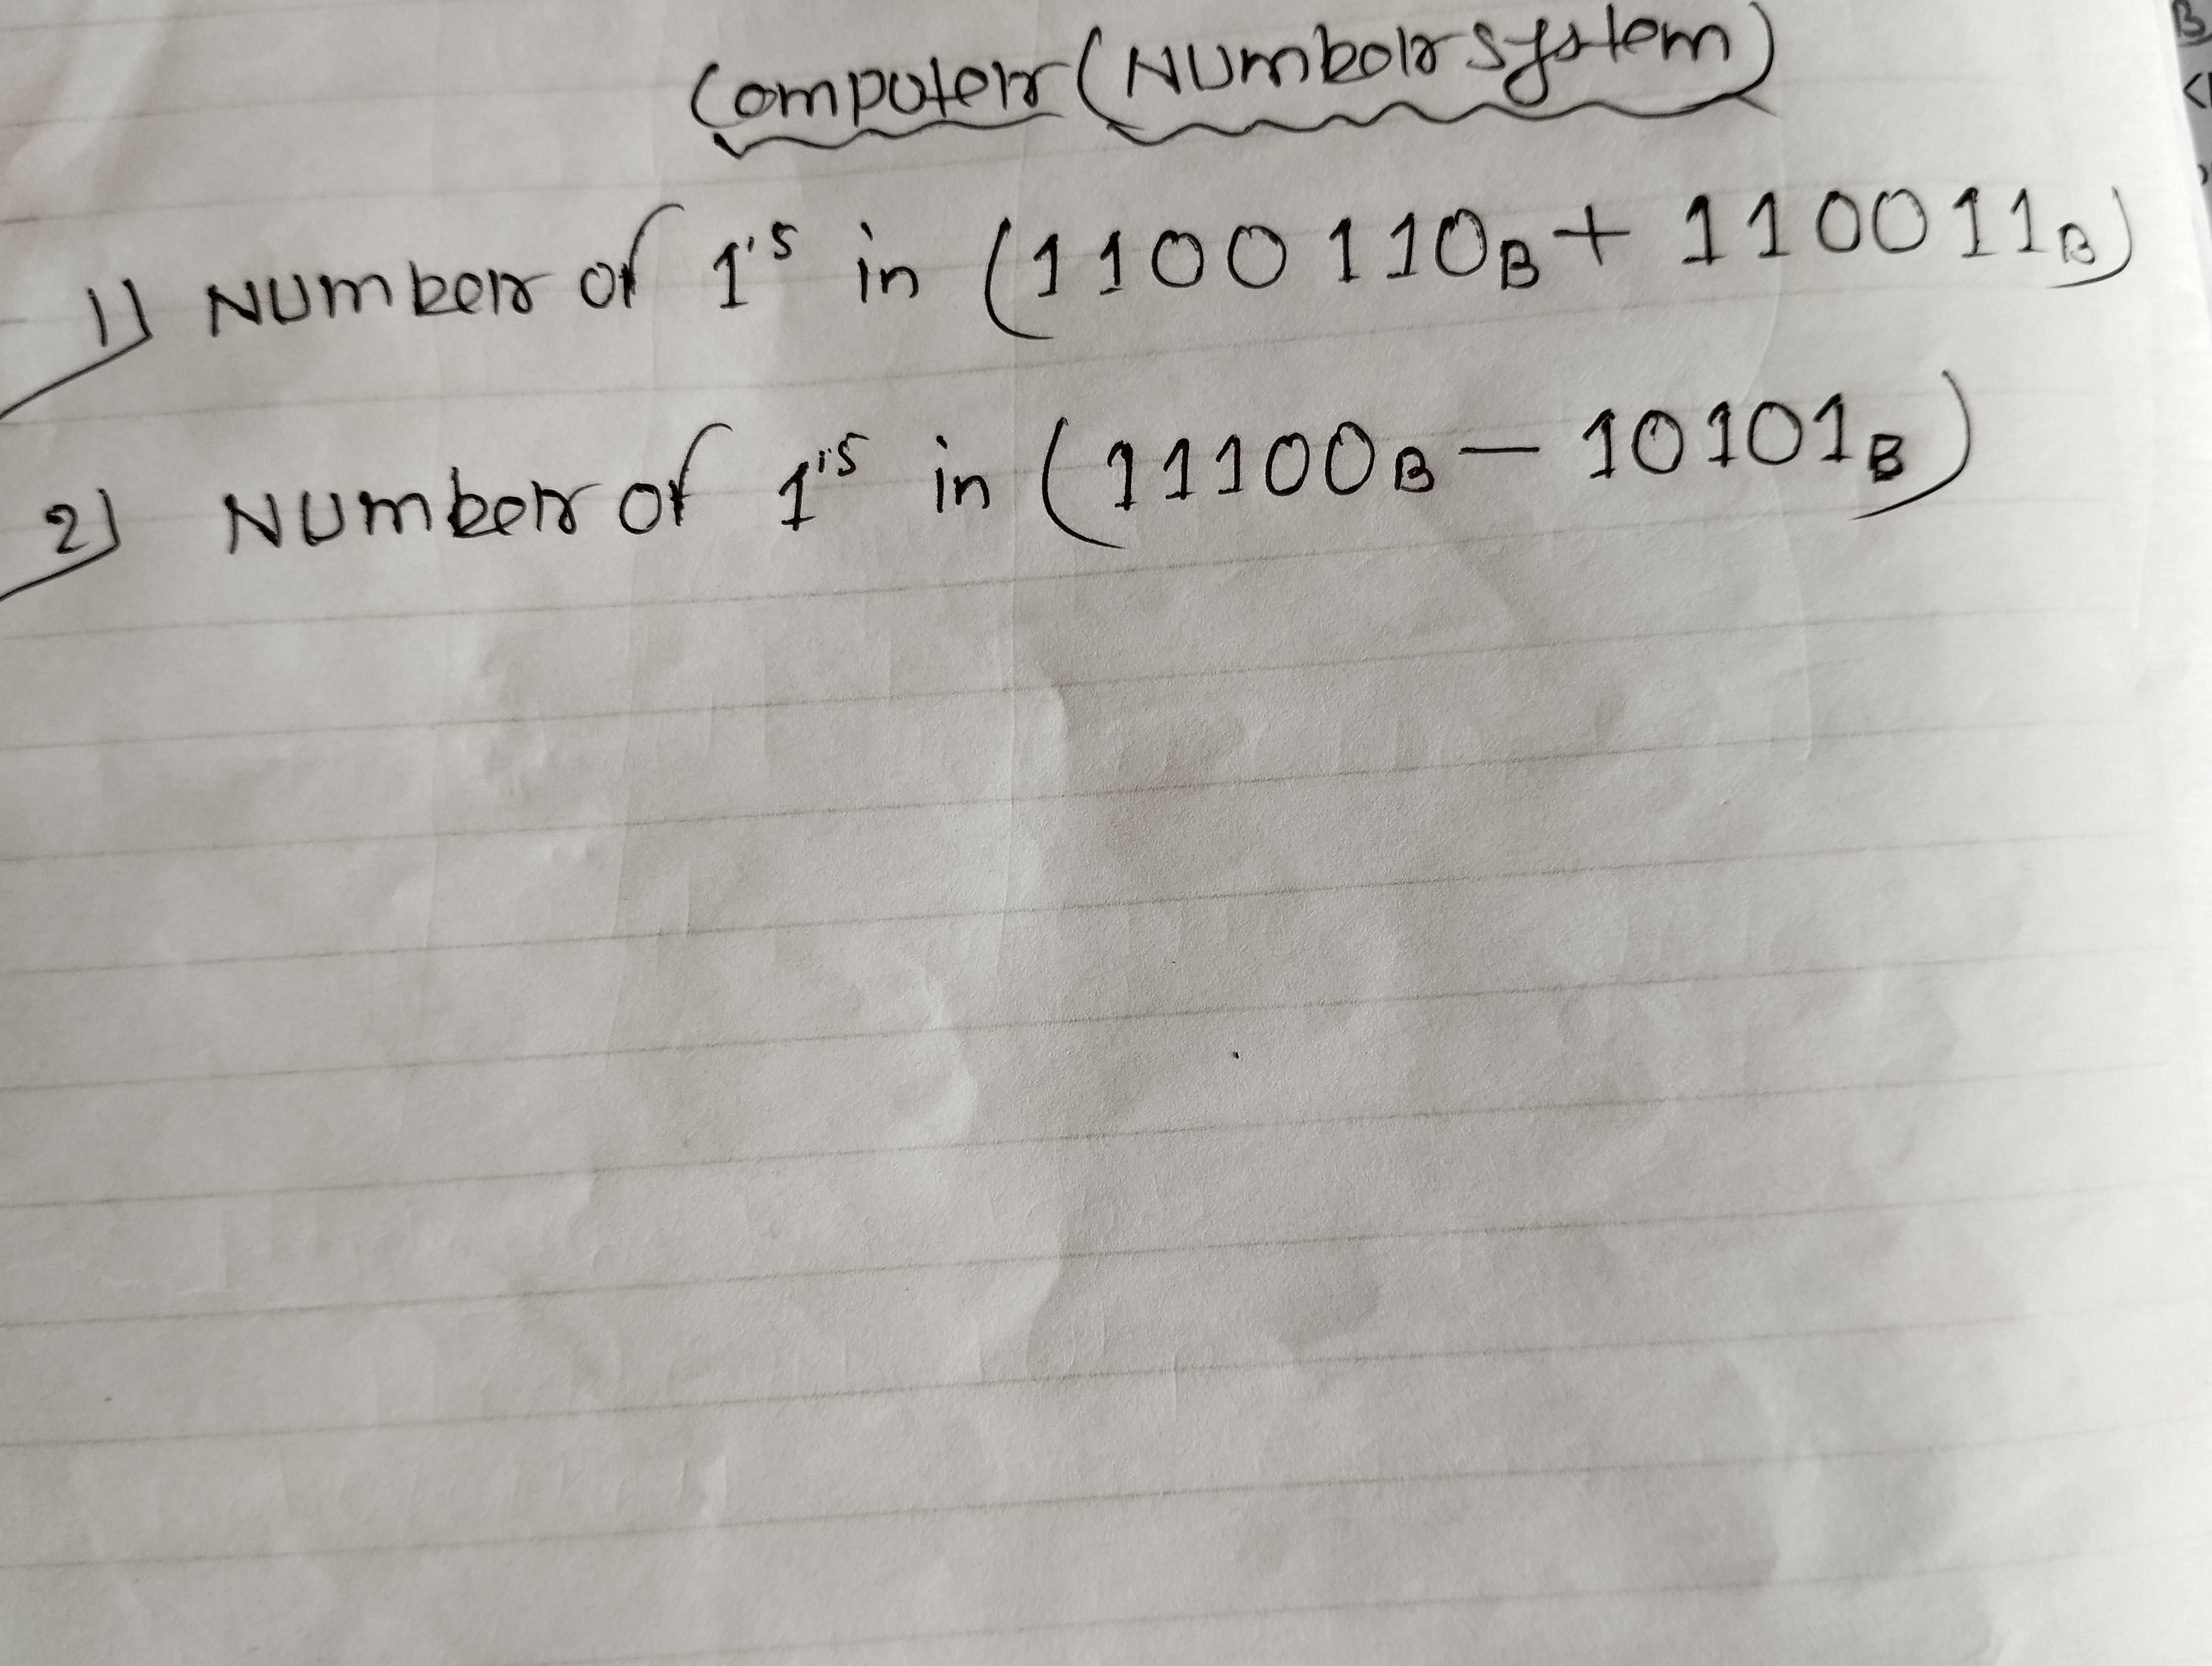 Computer (Number system)
1) Number of 1's in (1100110B + 110011B)
2) Number of 1's in (11100B - 10101B)